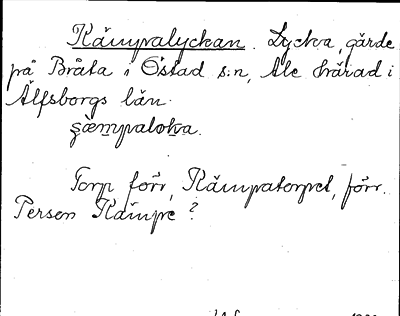 Kämpalyckan. Lycka, gärde
på Bråta i Östad s:n, Ale härad i
Älfsborgs län.
s̨æ̀mpalok̨a.
Torp förr, Kämpatorpet, förr.
Person Kämpe?